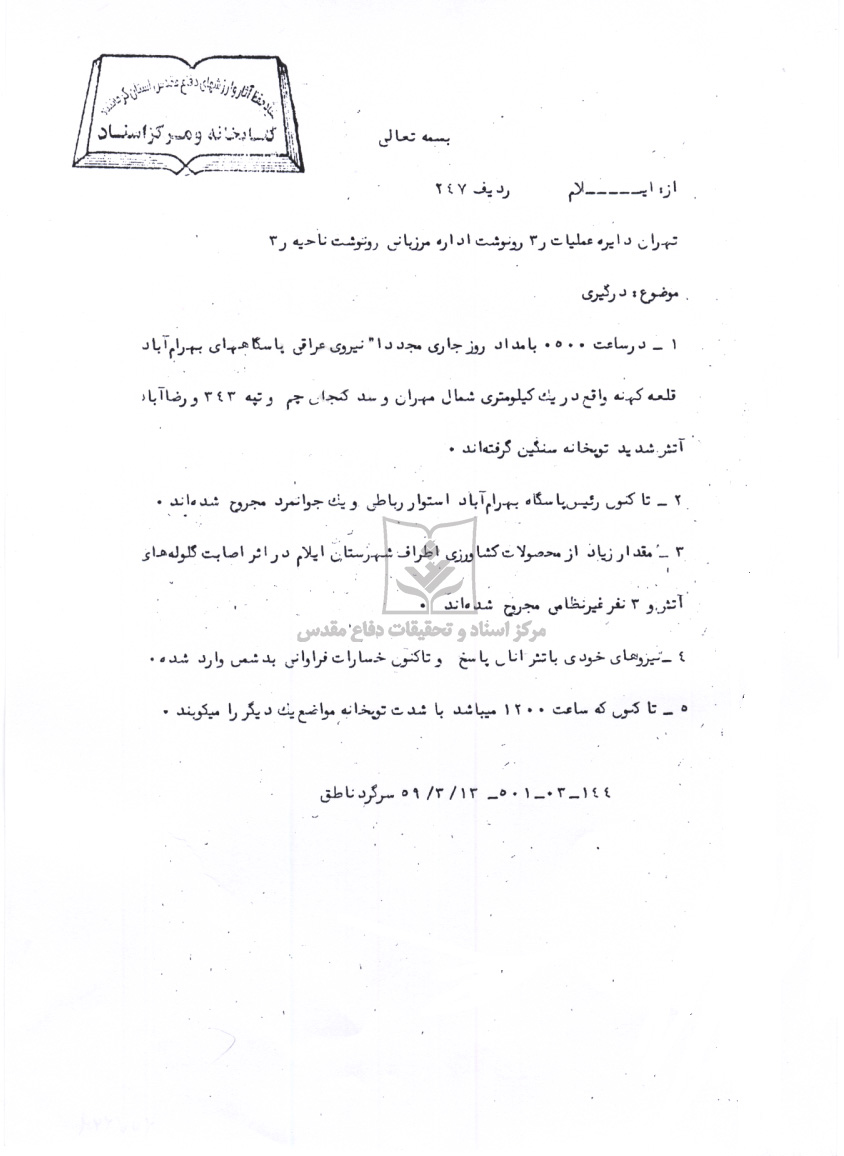 ستاد حفظ آثار و ارزشهای دفاع مقدس استان کرمانشاه
کتابخانه و مرکز اسناد
بسمه تعالی
از: ایـــــلام ردیف ٢٤٧
تهران دایره عملیات ر٣ رونوشت اداره مرزبانی رونوشت ناحیه ر٣
موضوع: درگیری
١ ـ درساعت ٠٥٠٠ بامداد روز جاری مجددا" نیروی عراقی پاسگاههای بهرام‌آباد
قلعه کهنه واقع در یک کیلومتری شمال مهران و سد کنجان چم و تپه ٣٤٣ و رضاآباد
آتش شدید توپخانه سنگین گرفته‌اند ٠
٢ ـ تا کنون رئیس پاسگاه بهرام‌آباد استوار رباطی و یک جوانمرد مجروح شده‌اند ٠
٣ ـ مقدار زیاد از محصولات کشاورزی اطراف شهرستان ایلام در اثر اصابت گلوله‌های
آتش و ٣ نفر غیرنظامی مجروح شده‌اند ٠
مرکز اسناد و تحقیقات دفاع مقدس
٤ ـ نیروهای خودی باتش انان پاسخ و تاکنون خسارات فراوانی بدشمن وارد شده ٠
٥ ـ تا کنون که ساعت ١٢٠٠ میباشد با شدت توپخانه مواضع یک دیگر را میکوبند ٠
١٤٤ـ٠٣ـ٥٠١ـ ٥٩/٣/١٣ سرگرد ناطق